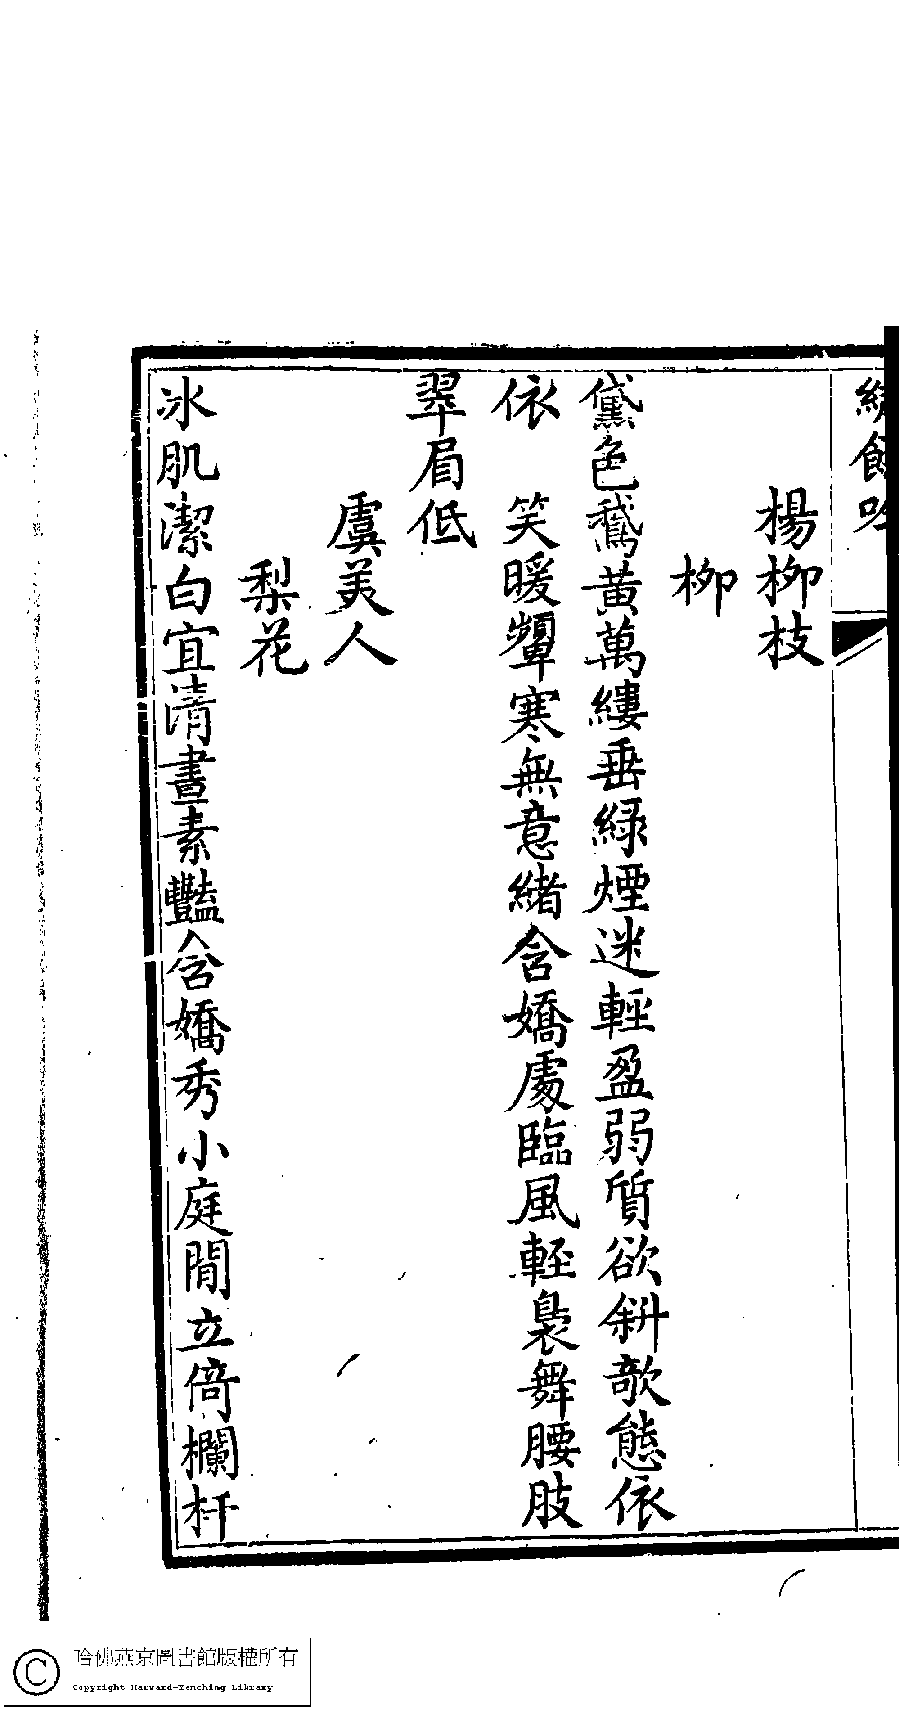 楊柳枝
柳
黛色鵞黃萬縷垂綠煙迷輕盈弱質欲斜欹態依
依　笑暖顰寒無意緒含嬌處臨風輕裊舞腰肢
翠眉低
虞美人
梨花
冰肌潔白宜清晝素豔含嬌秀小庭閒立倚欄杆
哈佛燕京圖書館版權所有
Copyright Harvard-Yenching Library